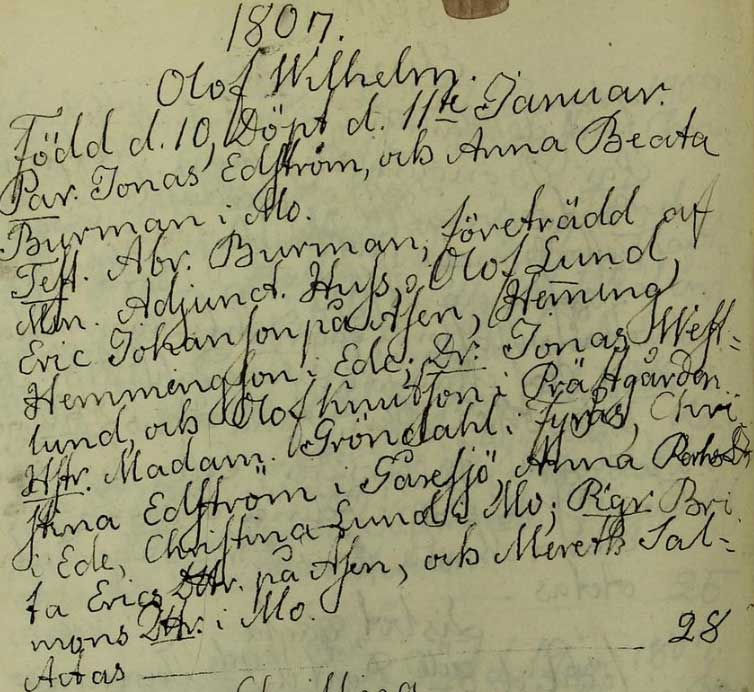 1807.
Olof Wilhelm.
Född d. 10, Döpt d. 11te Januar.
Par. Jonas Edström, och Anna Beata
Burman i Mo.
Test. Abr. Burman, företrädd af
Mn. Adjunct. Huss, Olof Lund,
Eric Johanson på Åsen, Hem̄ing
Hemmingson i Ede; Dr. Jonas West-
lund, och Olof Knutson i Prästgården
Hstr. Madam. Gröndahl i Fyrås, Chri
stina Edström i Gåresjö, Anna
i Ede, Christina Lund i Mo; Pigr Bri
ta Erics Dttr. på Åsen, och Mereth Sal-
mons Dttr. i Mo.
Actas 28